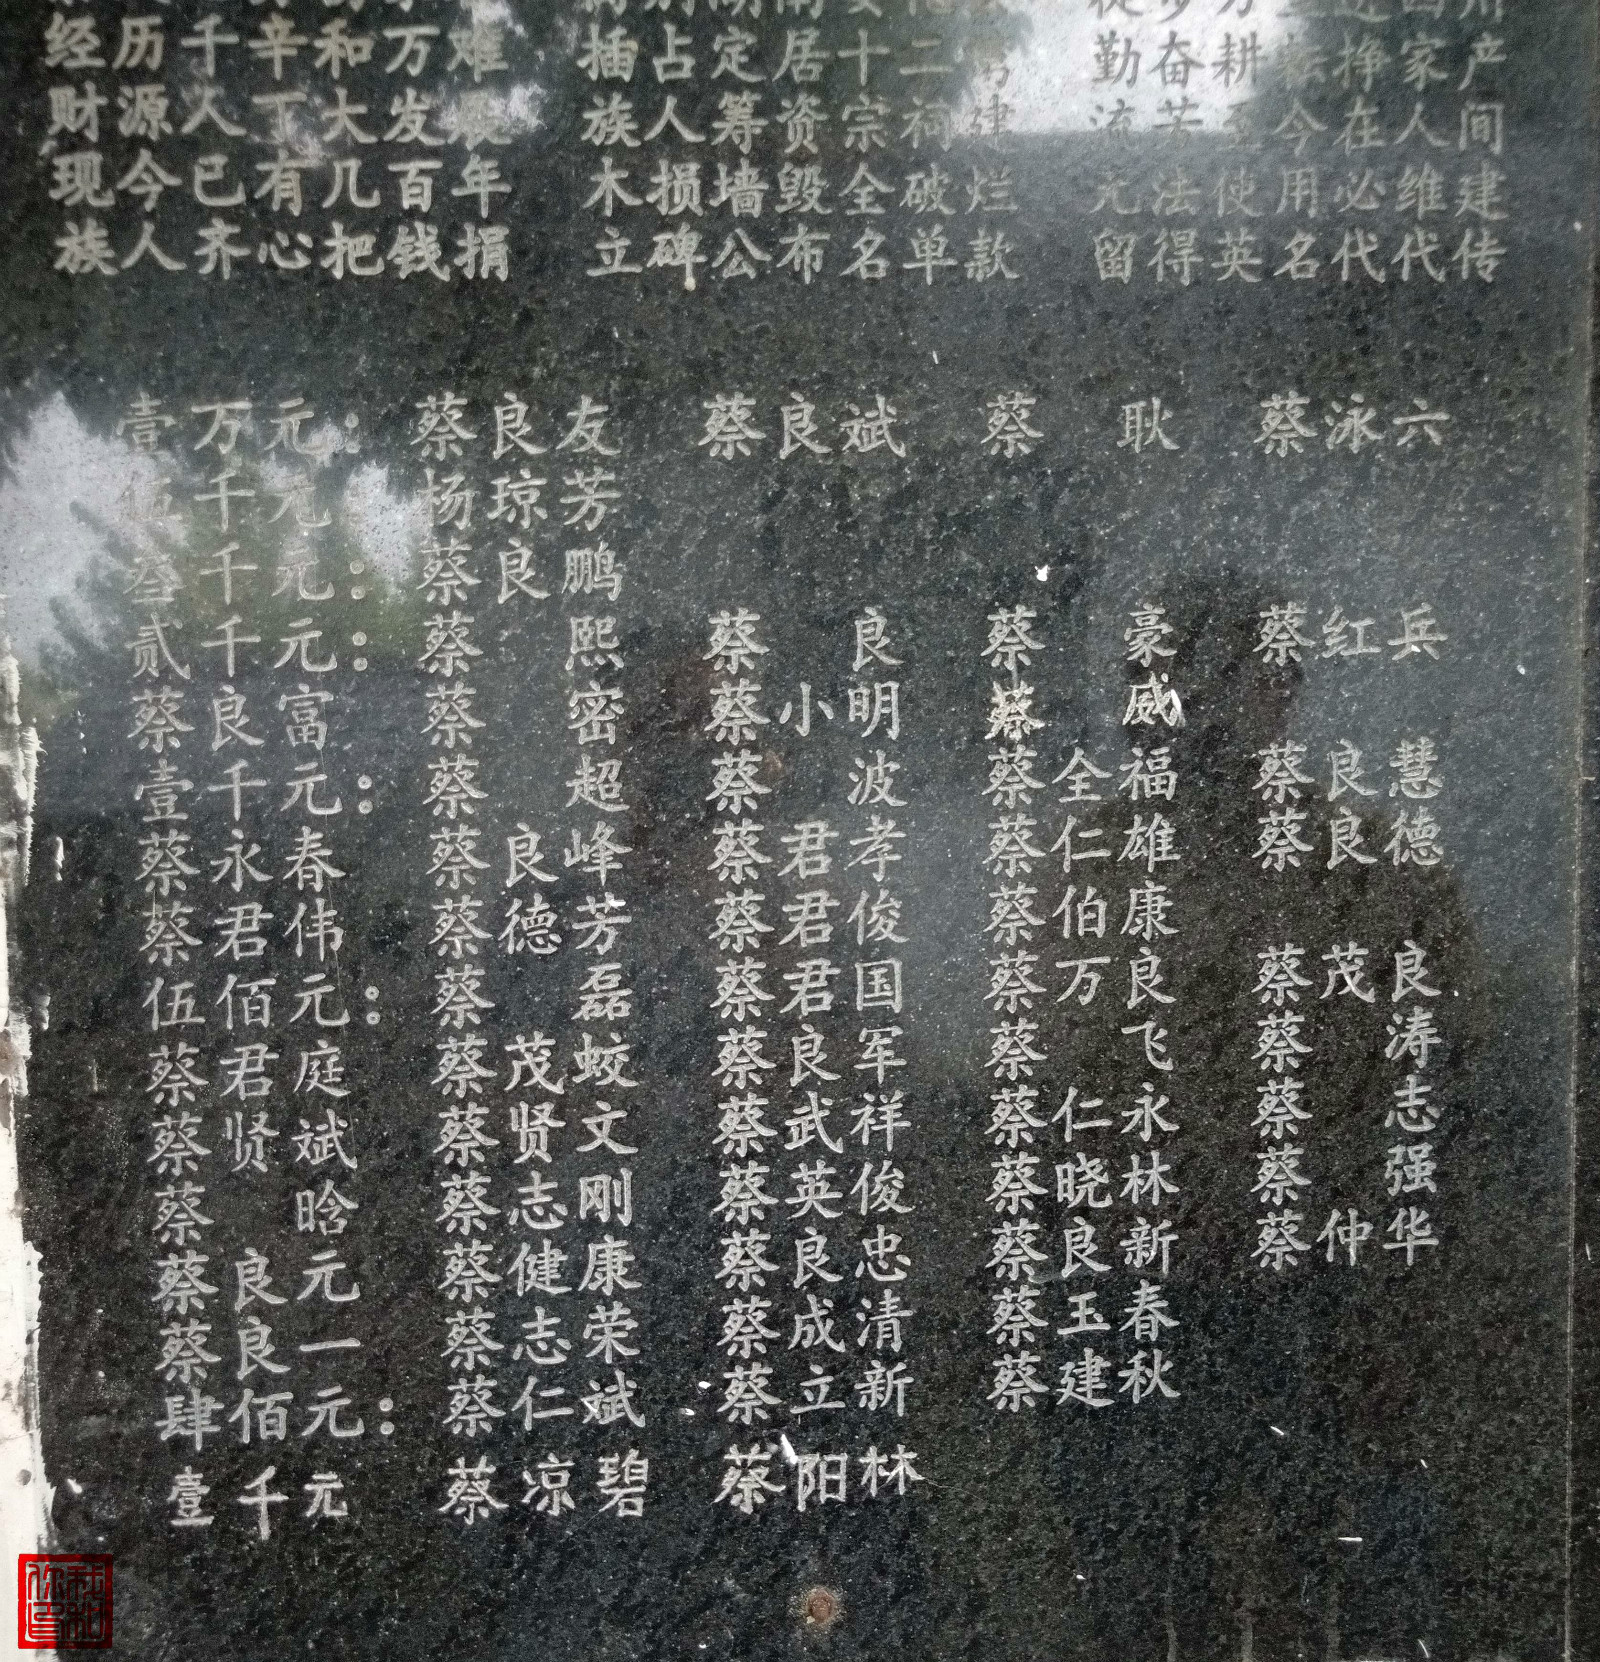 经历千辛和万难 插占定居十二 勤奋耕耘挣家产
财源人丁大发 族人筹资宗祠建 流芳至今在人间
现今已有几百年 木损墙毁全破烂 元法使用必维建
族人齐心把钱捐 立碑公布名单款 留得英名代代传
壹万元: 蔡良友 蔡良斌 蔡耿 蔡泳六
伍千元: 杨琼芳
叁千元: 蔡良鹏
贰千元: 蔡熙 蔡良 蔡豪 蔡红兵
蔡良富 蔡密 蔡小明 蔡威
壹千元: 蔡超 蔡波 蔡全福 蔡良慧
蔡永春 蔡良峰 蔡君孝 蔡仁雄 蔡良德
蔡君伟 蔡德芳 蔡君俊 蔡伯康
伍佰元: 蔡磊 蔡君国 蔡万良 蔡茂良
蔡君庭 蔡茂蛟 蔡良军 蔡飞 蔡涛
蔡贤斌 蔡贤文 蔡武祥 蔡仁永 蔡志
蔡晗 蔡志刚 蔡英俊 蔡晓林 蔡强
蔡良元 蔡健康 蔡良忠 蔡良新 蔡仲华
蔡良一 蔡志荣 蔡成清 蔡玉春
肆佰元: 蔡仁斌 蔡立新 蔡建秋
壹千元 蔡凉碧 蔡阳林